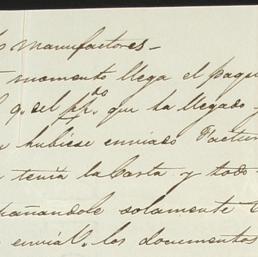 os manufactores —
momento llega el paqu
q. del ppdo. que ha llegado
hubiese enviado factur
tenía la carta y todo
pañandole solamente
enviál. los documentos